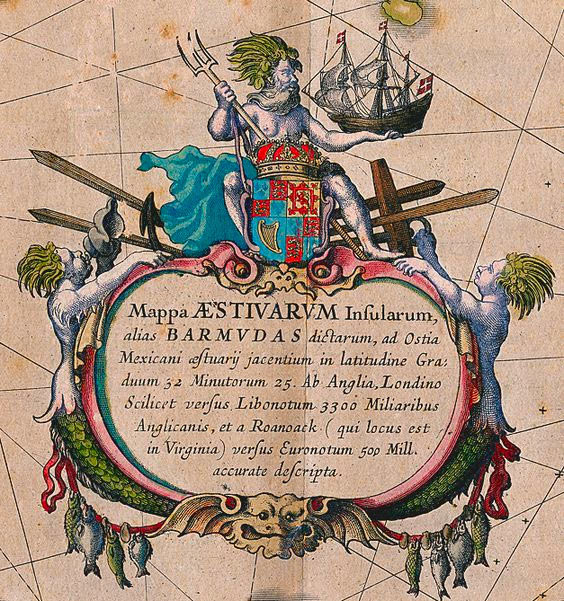 Mappa ÆSTIVARVM Insularum,
alias BARMVDAS dictarum, ad Ostia
Mexicani æstuarij jacentium in latitudine Gra:
duum 32 Minutorum 25. Ab Anglia, Londino
Scilicet versus Libonotum 3300 Miliaribus
Anglicanis, et a Roanoack (qui locus est
in Virginia) versus Euronotum 500 Mill.
accurate descripta.